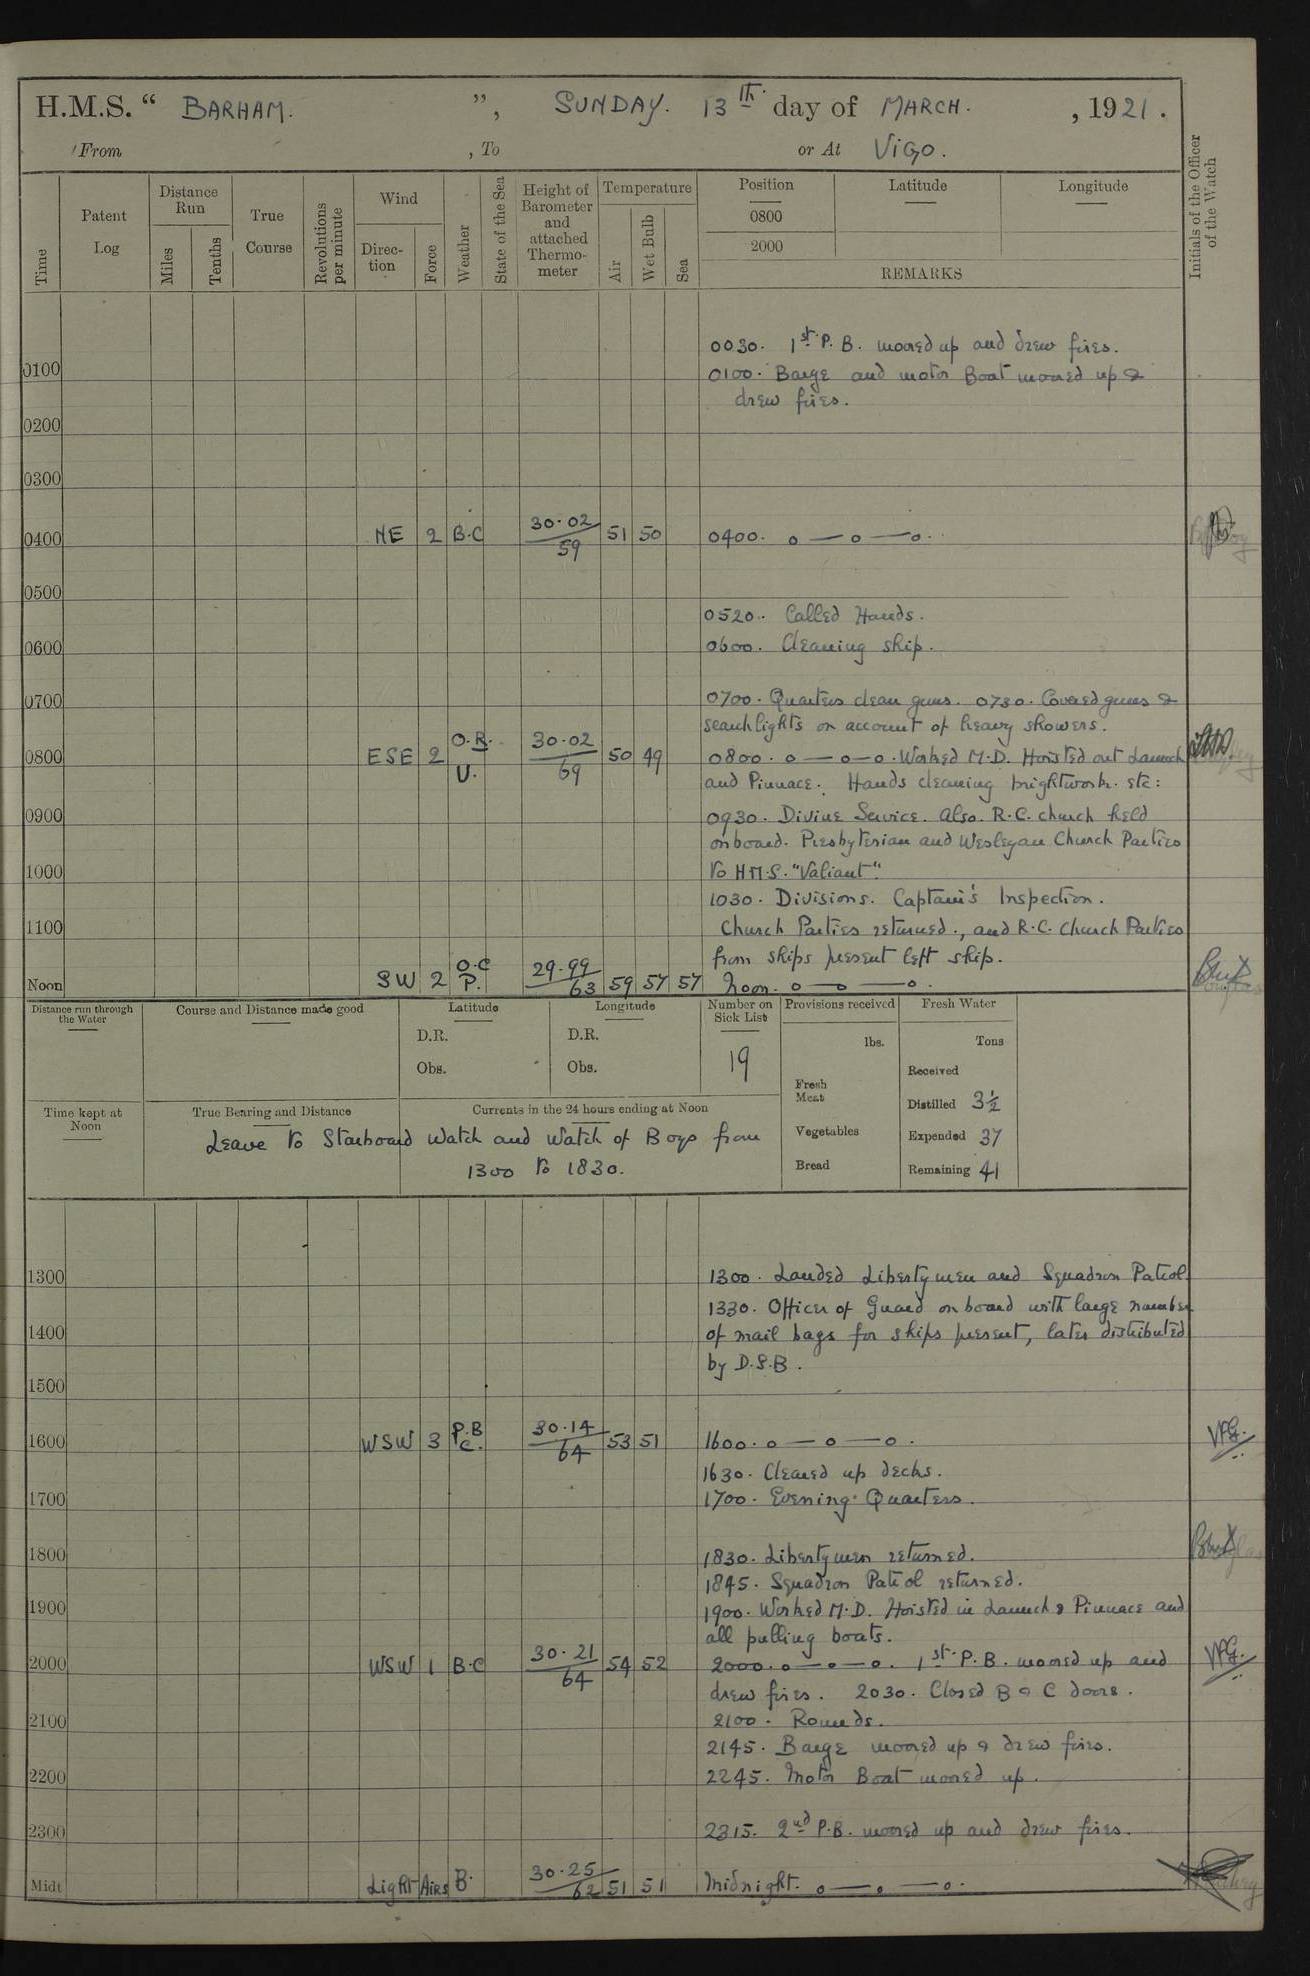 H.M.S. “ BARHAM. ”, SUNDAY. 13th day of MARCH. , 1921.
From , To or At VIGO.
Time
Patent Log
Distance Run
Miles
Tenths
True Course
Revolutions per minute
Wind
Direction
Force
Weather
State of the Sea
Height of Barometer and attached Thermometer
Temperature
Air
Wet Bulb
Sea
Position Latitude Longitude
0800
2000
REMARKS
Initials of the Officer of the Watch
0030. 1st P.B. moored up and drew fires.
0100 0100. Barge and motor Boat moored up &
drew fires.
0200
0300
0400 NE 2 B.C 30.02 59 51 50 0400. o — o — o.
0500
0520. Called Hands.
0600 0600. Cleaning ship.
0700 0700. Quarters clean guns. 0730. Covered guns &
searchlights on account of heavy showers.
0800 ESE 2 O.R. U. 30.02 69 50 49 0800. o — o — o. Worked M.D. Hoisted out Launch
and Pinnace. Hands cleaning brightwork. etc:
0900 0930. Divine Service. Also R.C. church held
onboard. Presbyterian and Wesleyan Church Parties
1000 to H.M.S. "Valiant".
1030. Divisions. Captain's Inspection.
1100 Church Parties returned., and R.C. Church Parties
from ships present left ship.
Noon SW 2 O.C P. 29.99 63 59 57 57 Noon. o — o — o.
Distance run through the Water
Course and Distance made good
Latitude
D.R.
Obs.
Longitude
D.R.
Obs.
Number on Sick List
19
Provisions received
lbs.
Fresh Meat
Vegetables
Bread
Fresh Water
Tons
Received
Distilled 3½
Expended 37
Remaining 41
Time kept at Noon
True Bearing and Distance
Currents in the 24 hours ending at Noon
Leave to Starboard Watch and Watch of Boys from
1300 to 1830.
1300 1300. Landed Libertymen and Squadron Patrol.
1330. Officer of Guard on board with large number
1400 of mail bags for ships present, later distributed
by D.S.B.
1500
1600 WSW 3 P.B C. 30.14 64 53 51 1600. o — o — o. VFG.
1630. Cleared up decks.
1700 1700. Evening Quarters.
1800 1830. Libertymen returned.
1845. Squadron Patrol returned.
1900 1900. Worked M.D. Hoisted in Launch & Pinnace and
all pulling boats.
2000 WSW 1 B.C 30.21 64 54 52 2000. o — o — o. 1st P.B. moored up and VFG.
drew fires. 2030. Closed B & C doors.
2100 2100. Rounds.
2145. Barge moored up & drew fires.
2200 2245. Motor Boat moored up.
2300 2315. 2nd P.B. moored up and drew fires.
Midt Light Airs B. 30.25 62 51 51 Midnight. o — o — o.